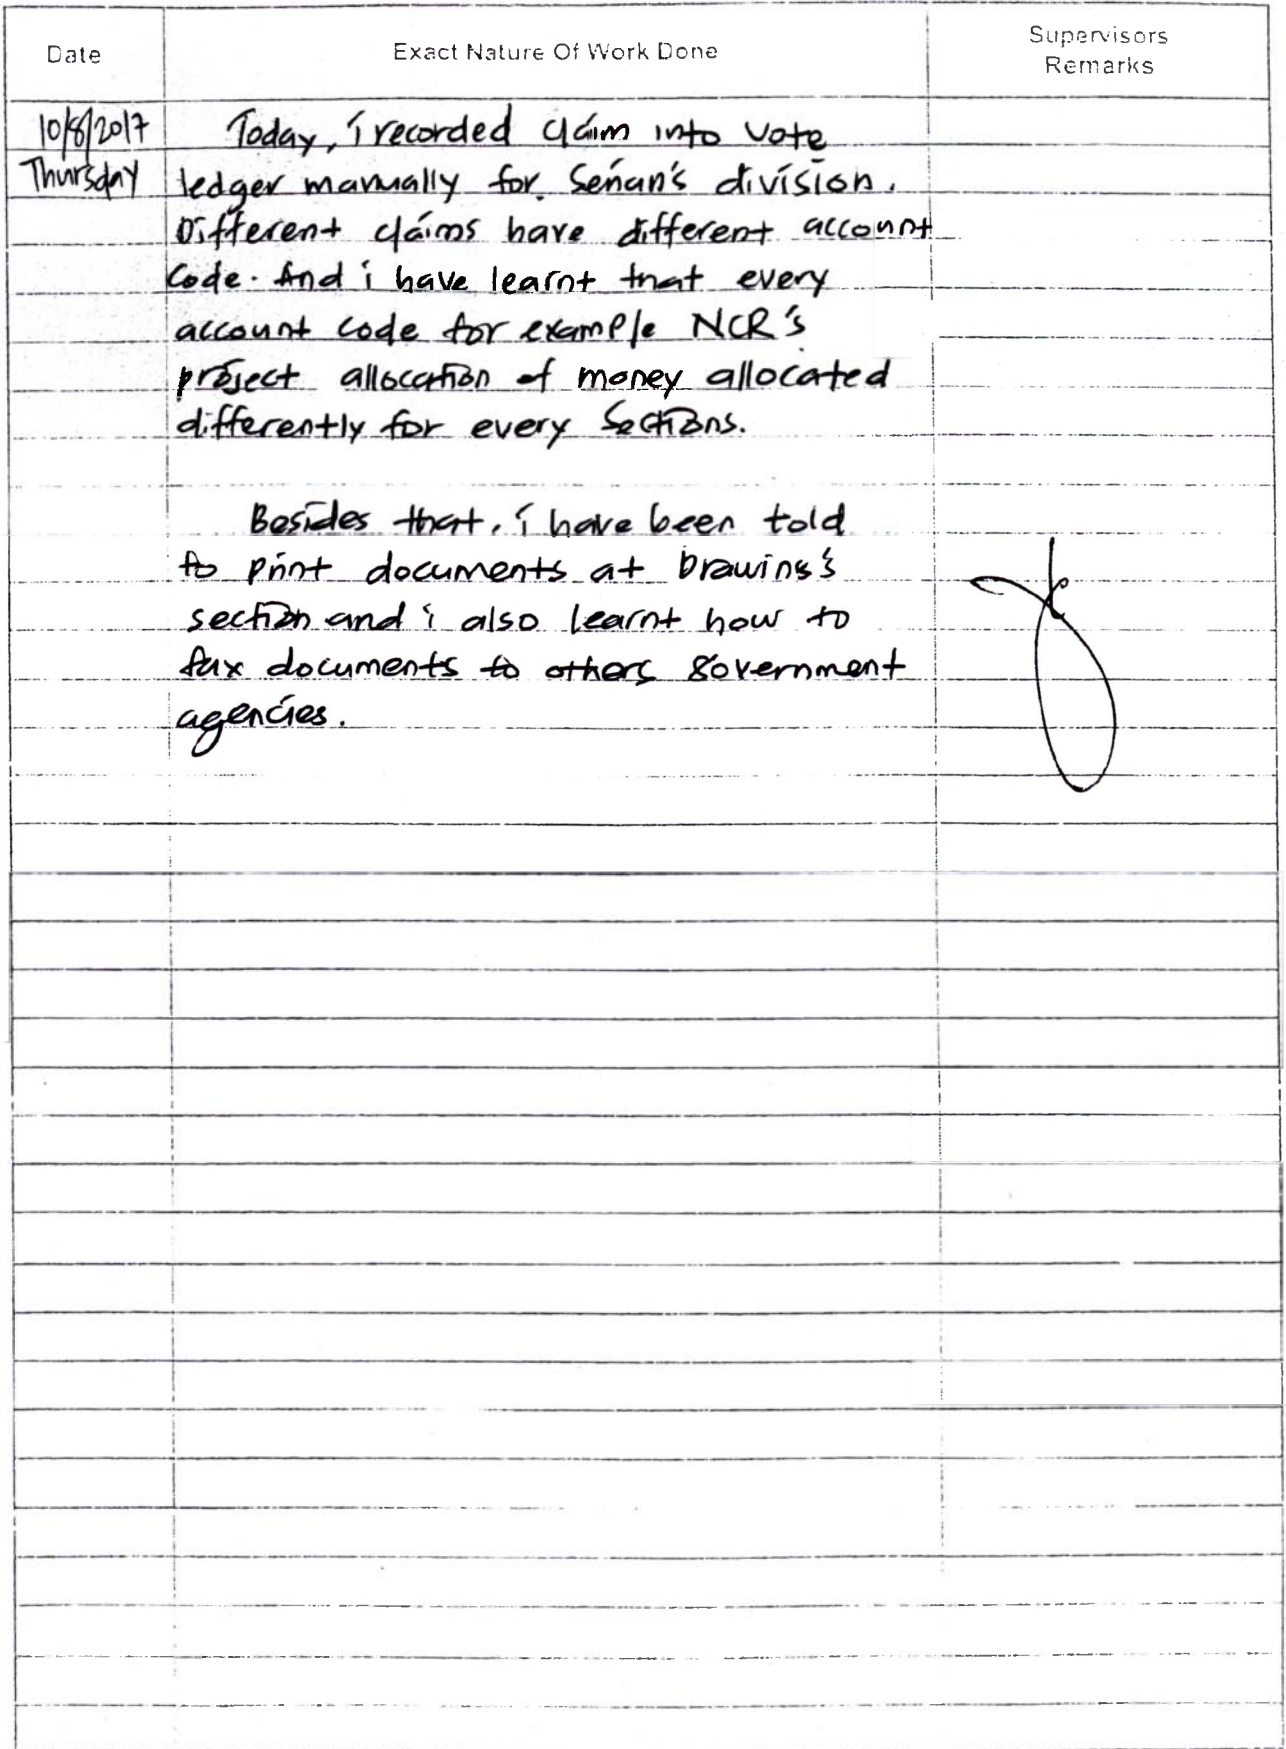 Date
Exact Nature Of Work Done
Supervisors
Remarks
10/8/2017
Thursday
Today, i recorded claim into vote
ledger manually for Senan's division.
Different claims have different account
code. And i have learnt that every
account code for example NCR's
project allocation of money allocated
differently for every sections.
Besides that, i have been told
to print documents at Drawing's
section and i also learnt how to
fax documents to others government
agencies.